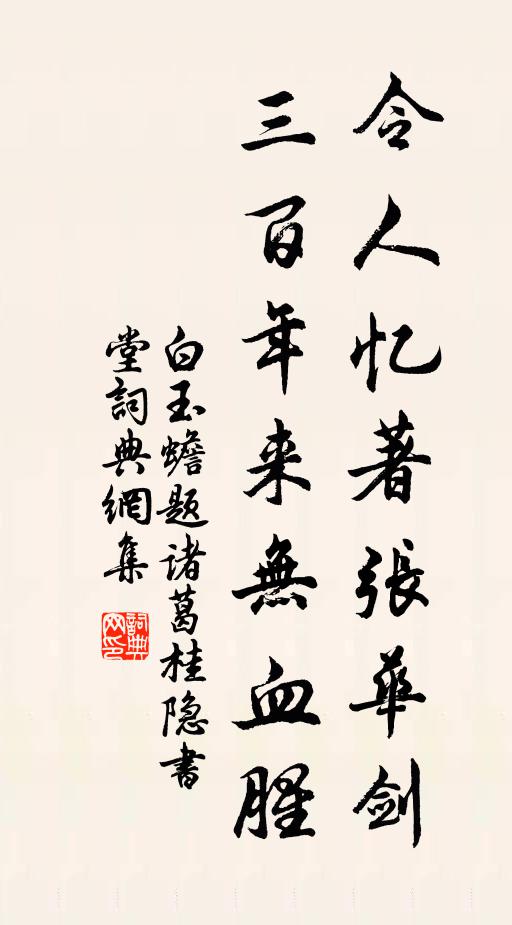 令人忆著張華剑
三百年来無血腥
白玉蟾题诸葛桂隐書
堂詞典網集
詞典网印